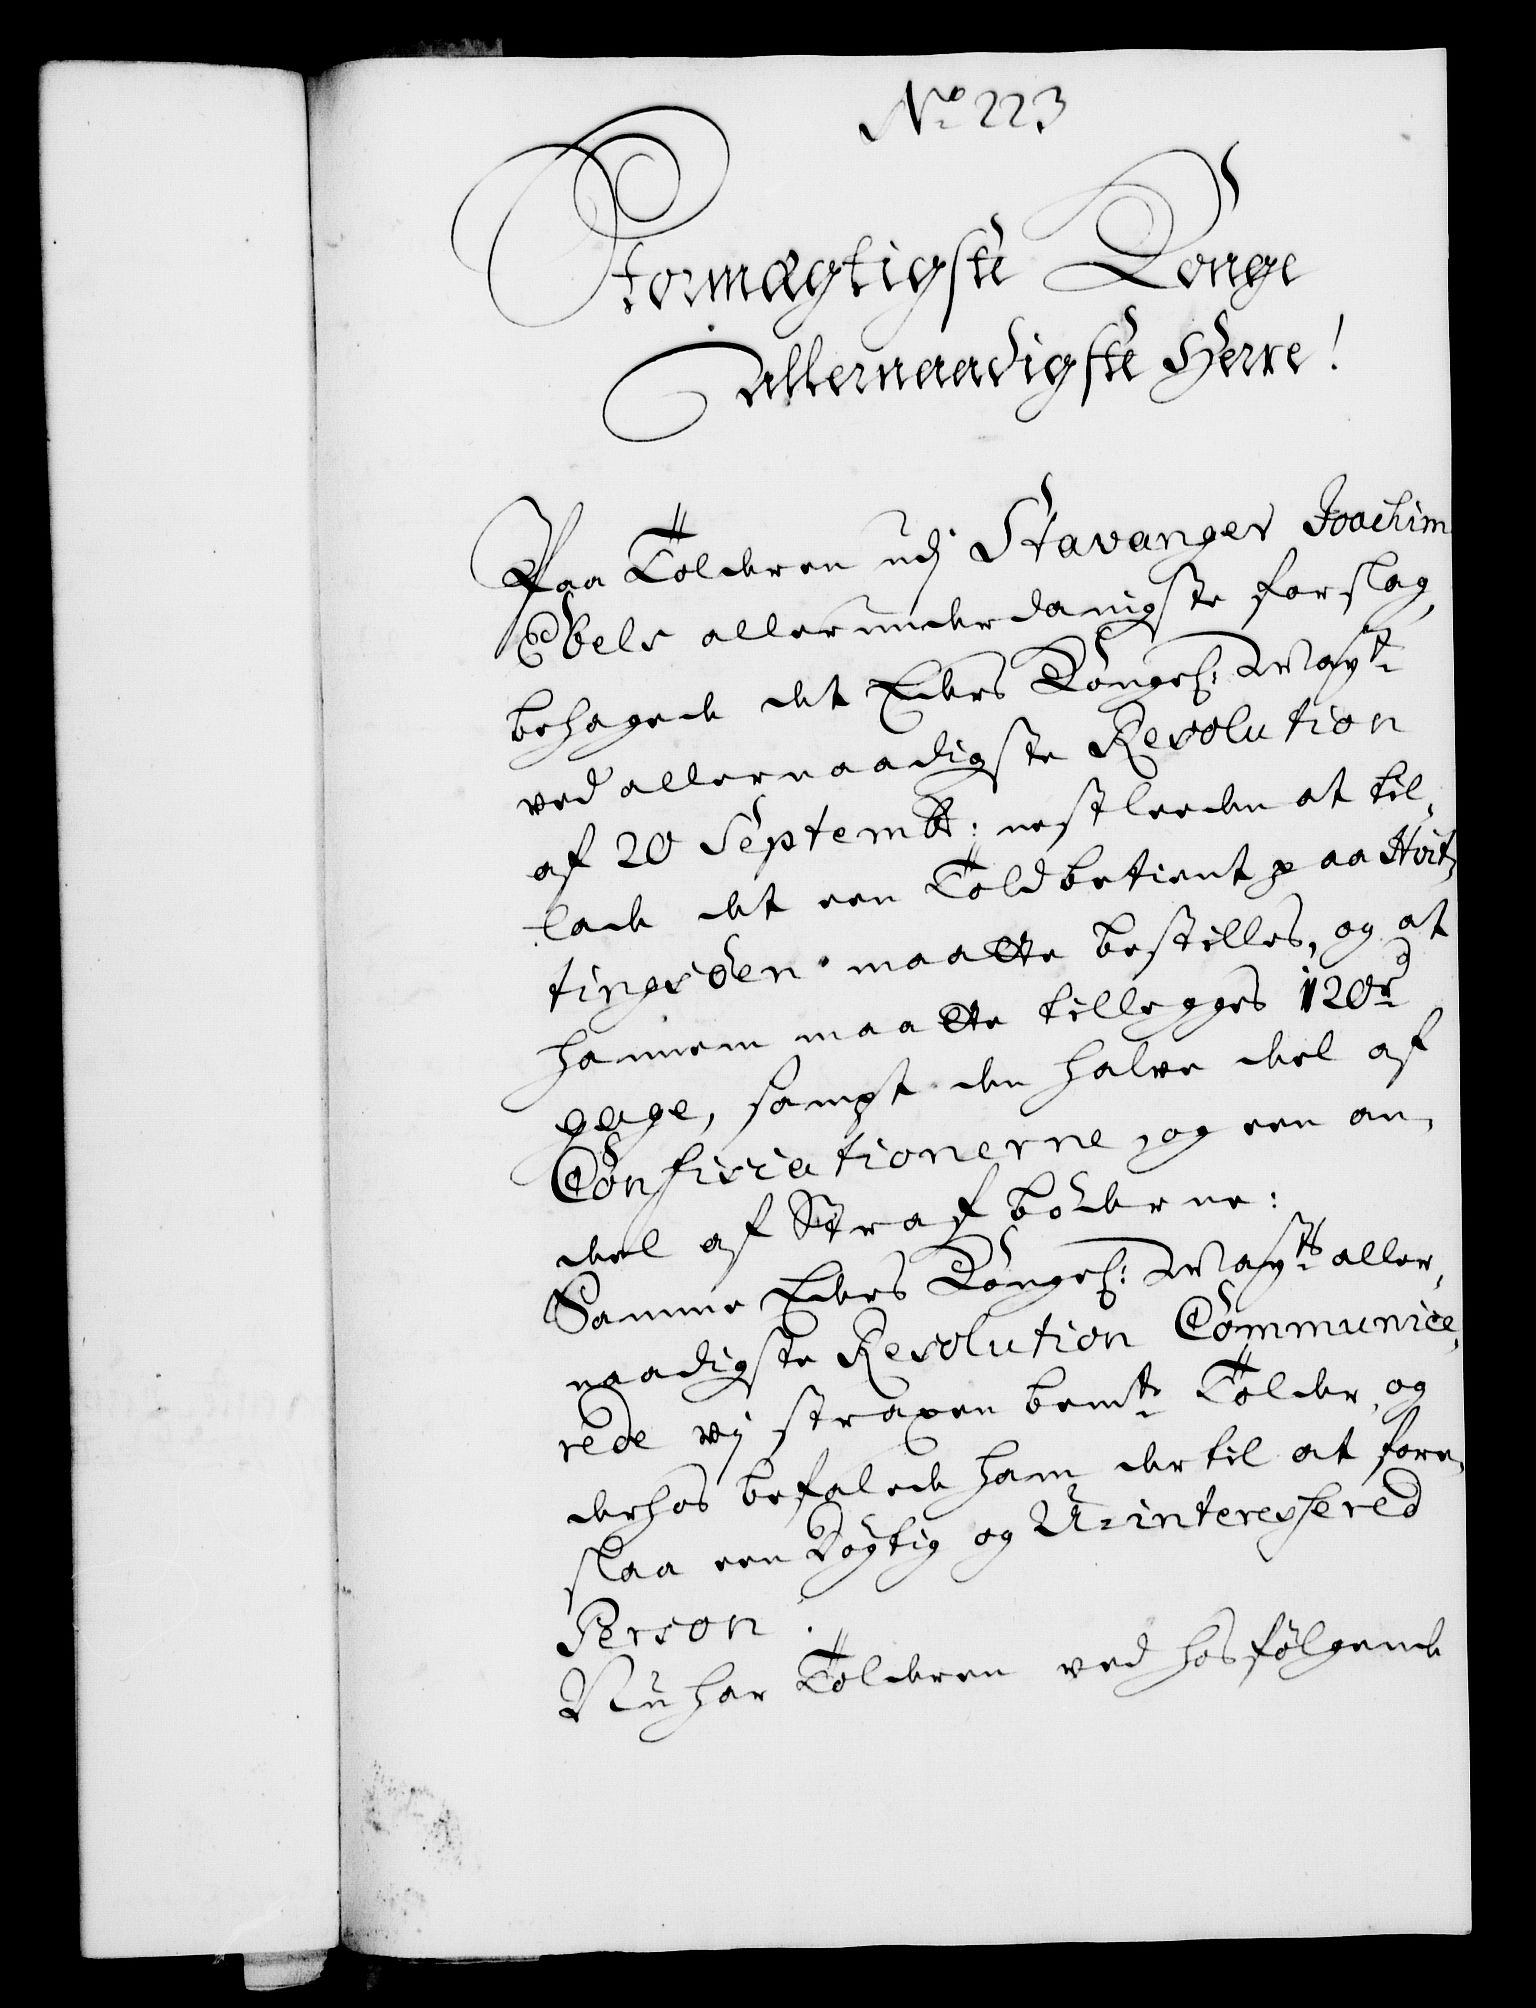 No 223
Stormægtigste Konge
allernaadigste Herre!
Paa Tolderen udj Stavanger Joachim
Ebels allerunderdanigste forslag,
behagede det Eders Kongel: May:tt
ved allernaadigste Resolution
af 20 Septembr: nestleeden at til,
lade det een Toldbetient paa Hvit,
tingsöen maatte bestilles, og at
hannem maatte tillegges 120 rd
gage, sampt den halve deel af
Confiscationerne, og een an,
deel af Straf böderne:
Samme Eders Kongel: May:tts aller,
naadigste Resolution Communice,
rede vj straxen bem:te Tolder, og
derhos befalede ham dertil at fore,
slaa een Dögtig og U-interessered
Person.
Nu har Tolderen ved hosfölgende